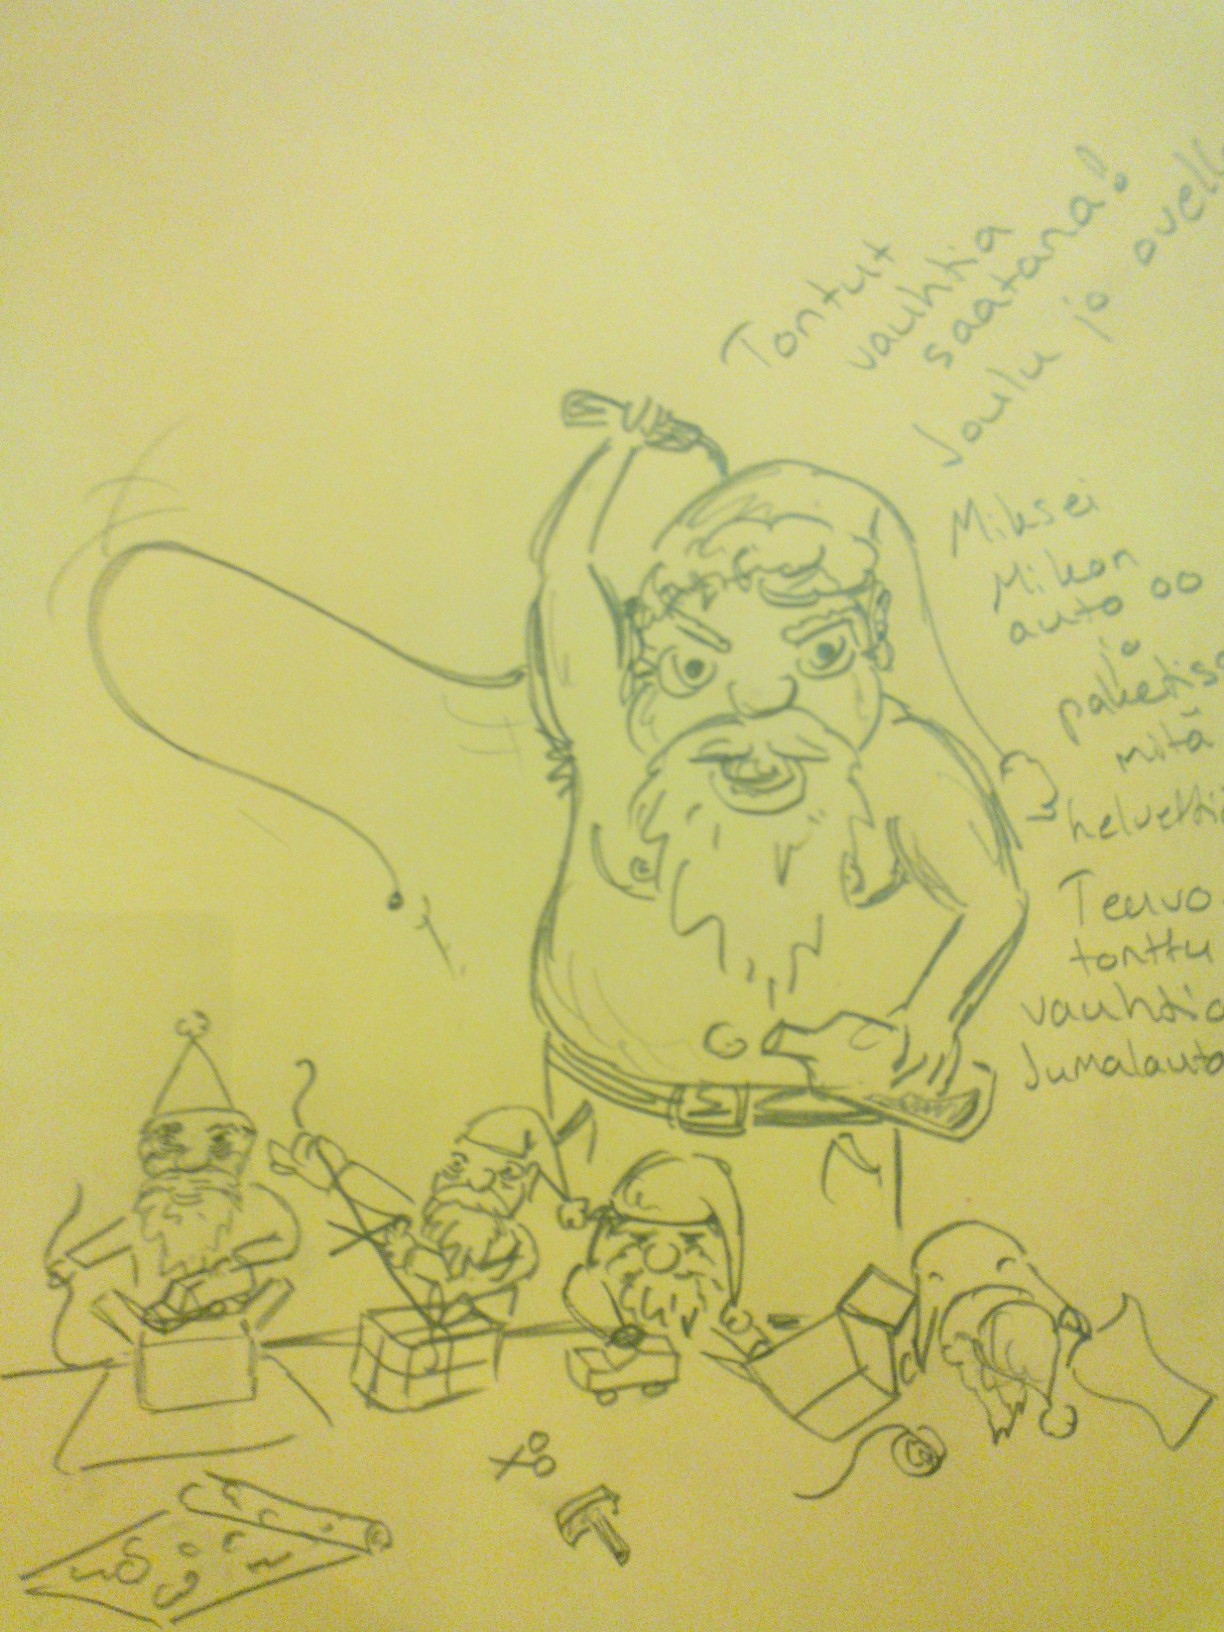 Tontut
vauhtia
saatana!
Joulu jo ovella
Miksei
Mikon
auto oo
jo
paketissa
mitä
helvettiä
Teuvo
tonttu
vauhtia
Jumalauta